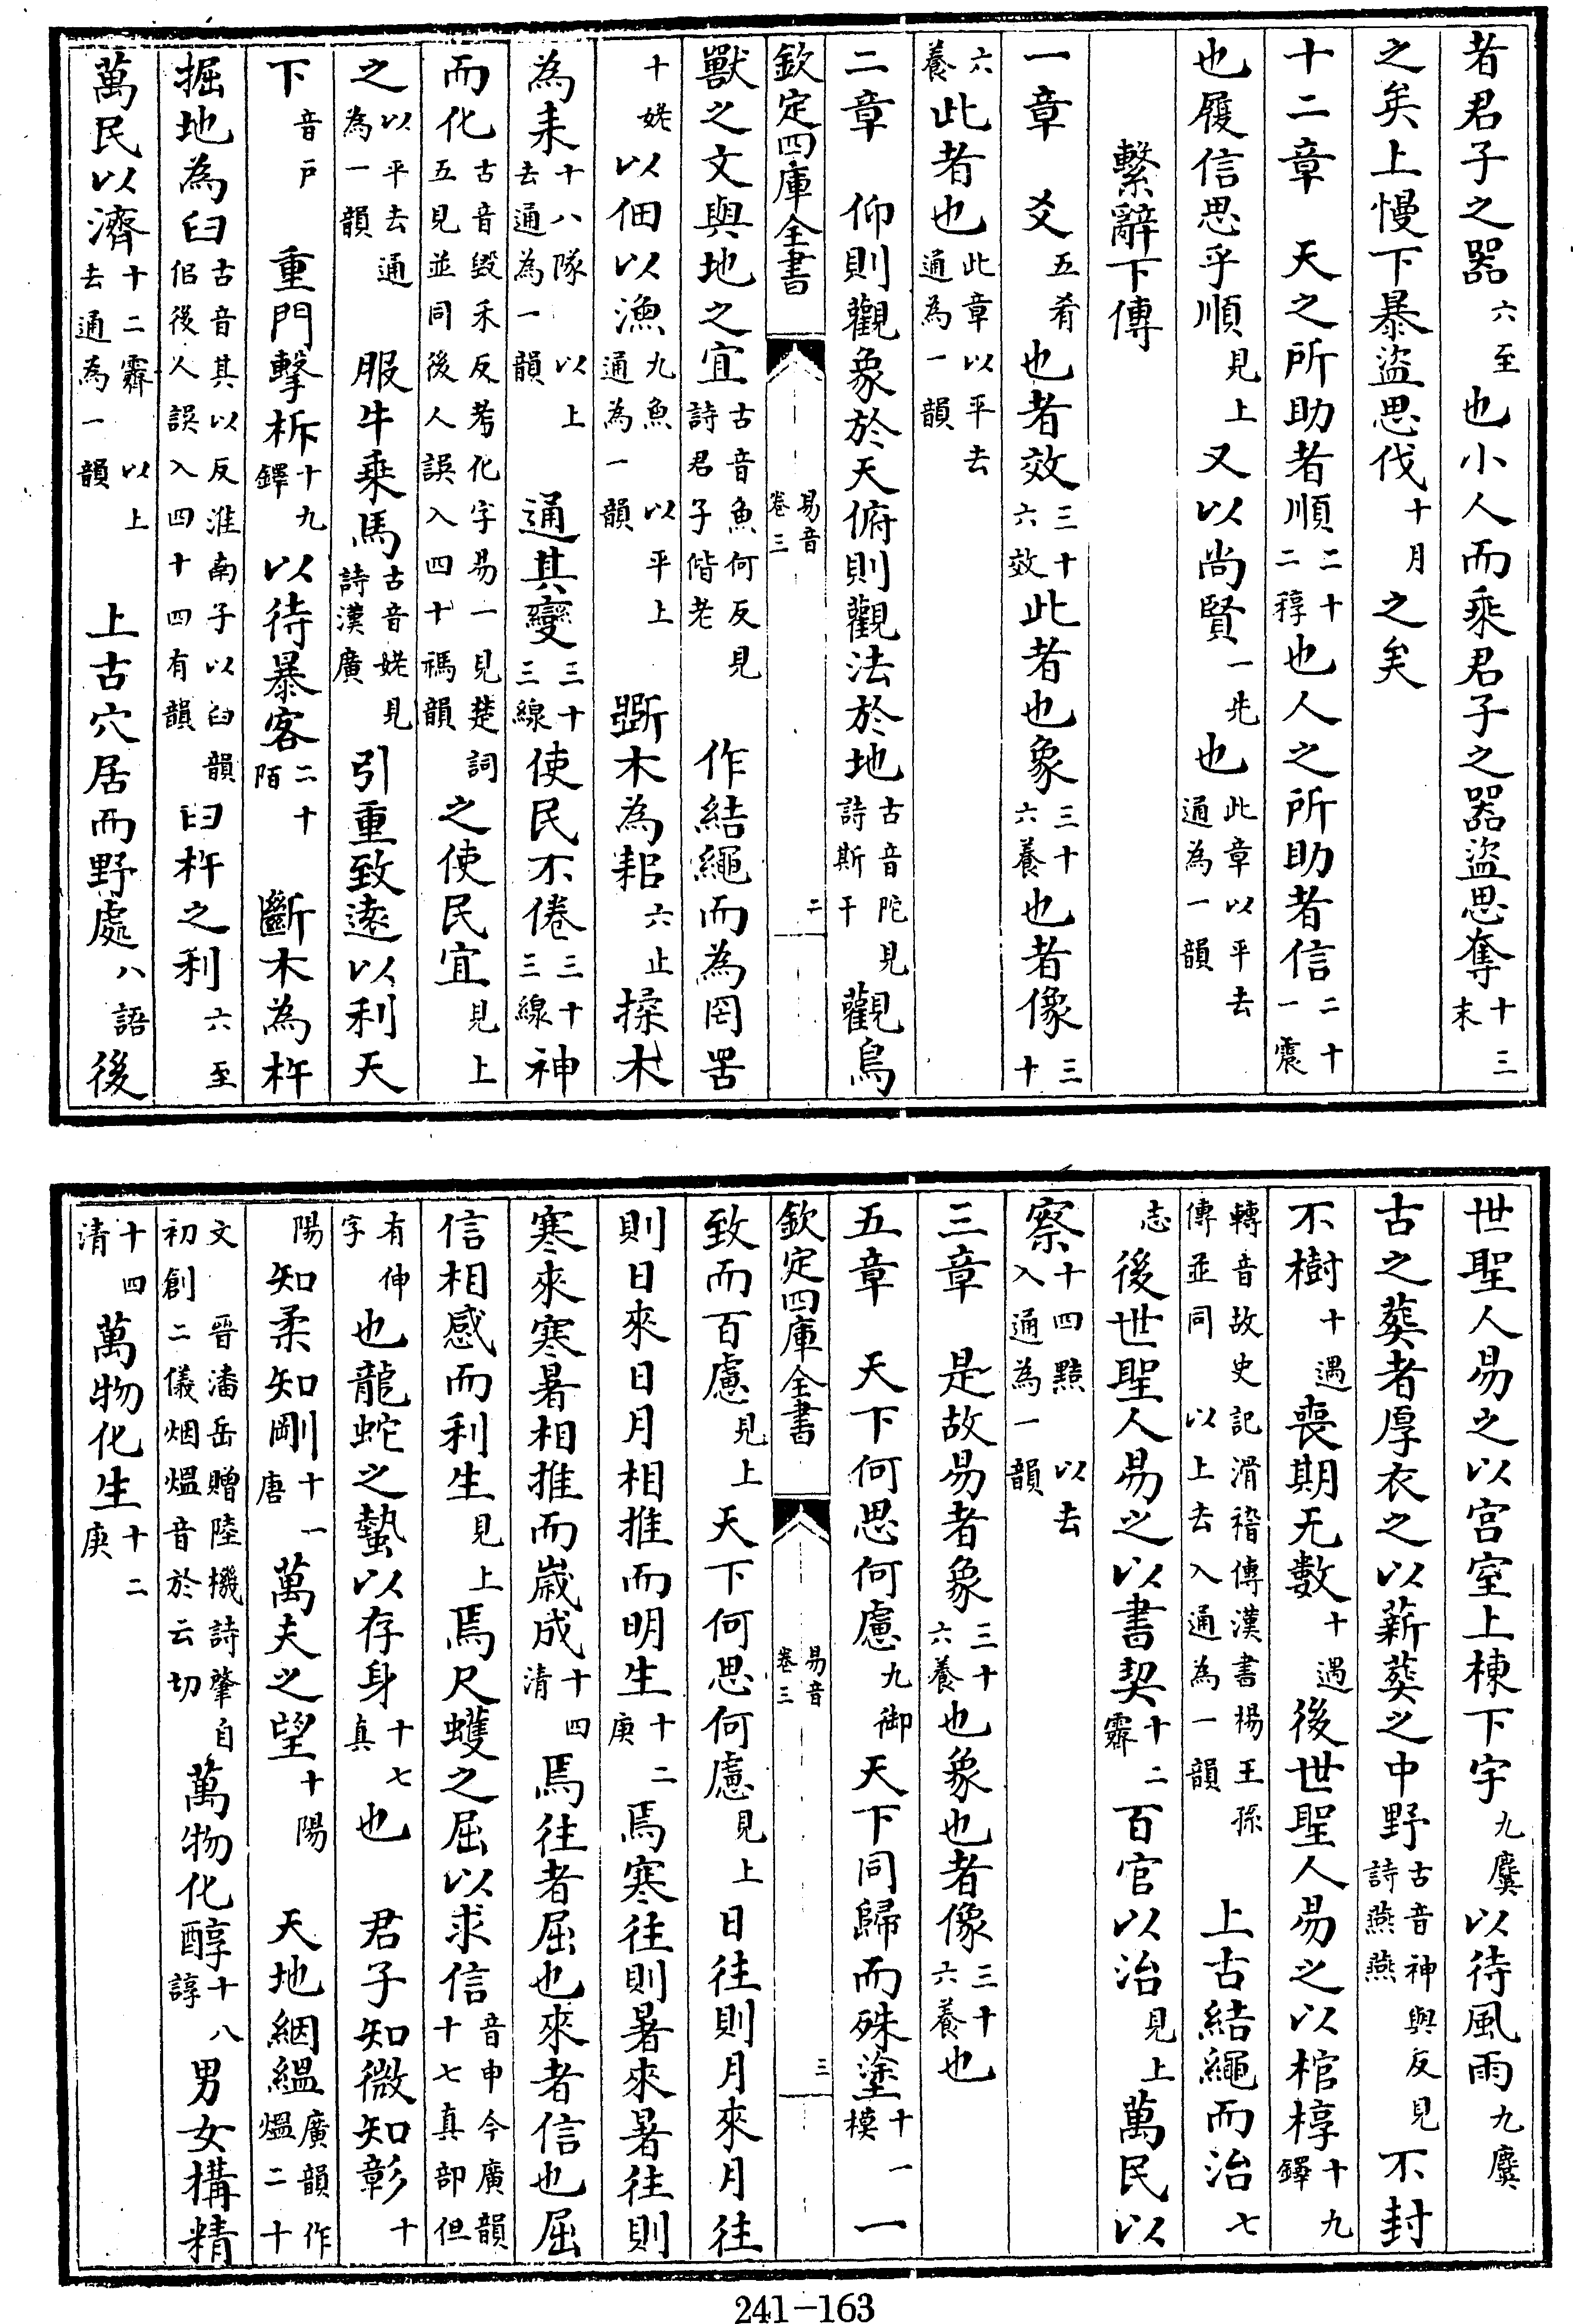 者君子之器六至也小人而乘君子之器盜思奪十三末
之矣上慢下暴盜思伐十月之矣
十二章　天之所助者順二十二稕也人之所助者信二十一震
也履信思乎順見上又以尚賢一先也此章以平去通為一韻
繫辭下傳
一章　爻五肴也者效三十六效此者也象三十六養也者像三十
六養此者也此章以平去通為一韻
二章　仰則觀象於天俯則觀法於地古音陀見詩斯干觀鳥
欽定四庫全書　易音卷三　二
獸之文與地之宜古音魚何反見詩君子偕老　作結繩而為罔罟
十姥以佃以漁九魚　以平上通為一韻　斵木為耜六止揉木
為耒十八隊　以上去通為一韻　通其變三十三線使民不倦三十三線神
而化古音毀禾反考化字易一見楚詞五見並同後人誤入四十禡韻之使民宜見上
之以平去通為一韻　服牛乘馬古音姥見詩漢廣引重致遠以利天
下音戶　重門擊柝十九鐸以待暴客二十陌　斷木為杵
掘地為臼古音其以反淮南子以臼韻佀後人誤入四十四有韻臼杵之利六至
萬民以濟十二霽　以上去通為一韻　上古穴居而野處八語後
世聖人易之以宮室上棟下宇九麌以待風雨九麌
古之葬者厚衣之以薪葬之中野古音神與反見詩燕燕不封
不樹十遇喪期无數十遇後世聖人易之以棺椁十九鐸
轉音故史記滑稽傳漢書楊王孫傳並同　以上去入通為一韻　上古結繩而治七
志後世聖人易之以書契十二霽百官以治見上萬民以
察十四黠　以去入通為一韻
三章　是故易者象三十六養也象也者像三十六養也
五章　天下何思何慮九御天下同歸而殊塗十一模一
欽定四庫全書　易音卷三　三
致而百慮見上天下何思何慮見上日往則月來月往
則日來日月相推而明生十二庚焉寒往則暑來暑往則
寒來寒暑相推而歲成十四清焉往者屈也來者信也屈
信相感而利生見上焉尺蠖之屈以求信音申今廣韻十七真部但
有伸字也龍蛇之蟄以存身十七真也　君子知微知彰十
陽知柔知剛十一唐萬夫之望十陽　天地絪縕廣韻作熅二十
文　晉潘岳贈陸機詩肇自初創二儀烟熅音於云切萬物化醇十八諄男女構精
十四清萬物化生十二庚
241-163